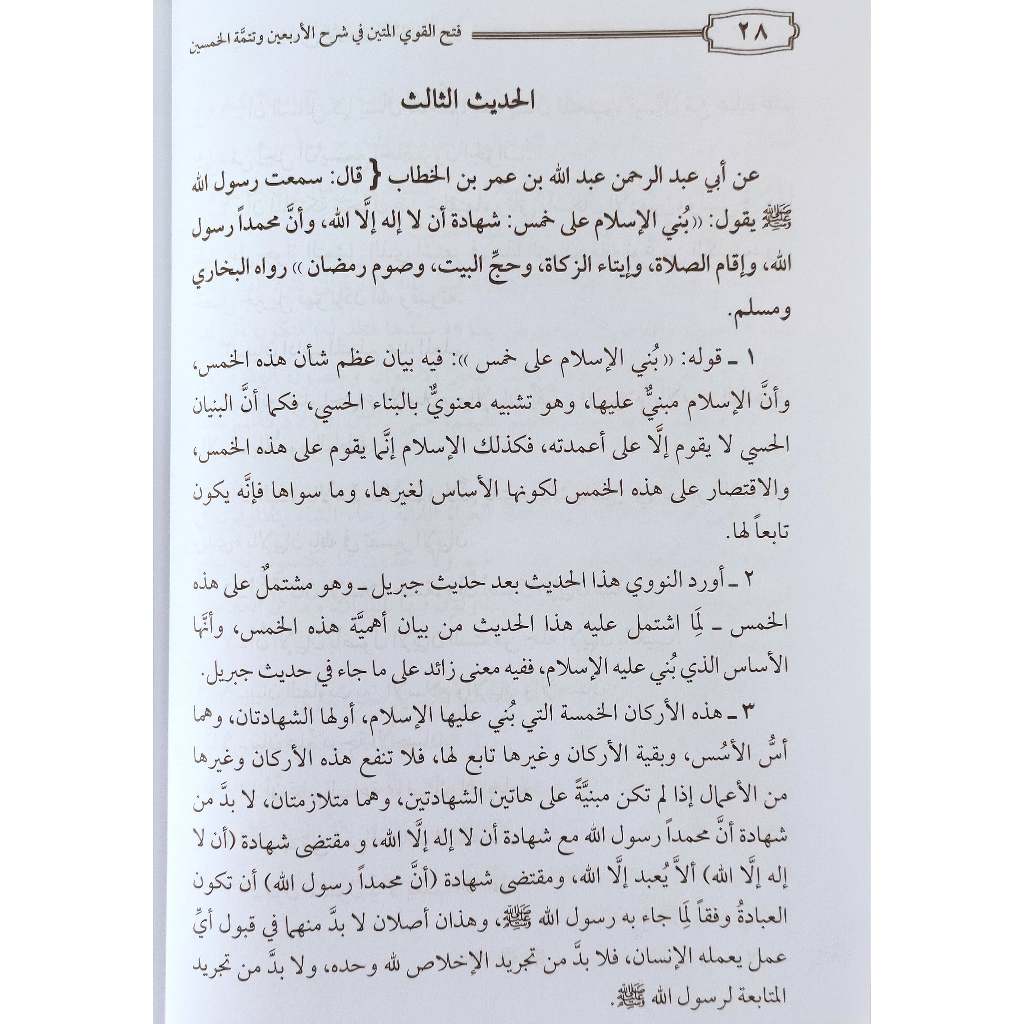 ٢٨ فتح القوي المتين في شرح الأربعين وتتمَّة الخمسين
الحديث الثالث
عن أبي عبد الرحمن عبد الله بن عمر بن الخطاب { قال: سمعت رسول الله
ﷺ يقول: ((بُني الإسلام على خمس: شهادة أن لا إله إلَّا الله، وأنَّ محمداً رسول
الله، وإقام الصلاة، وإيتاء الزكاة، وحجِّ البيت، وصوم رمضان)) رواه البخاري
ومسلم.
١ ـ قوله: ((بُني الإسلام على خمس)): فيه بيان عظم شأن هذه الخمس،
وأنَّ الإسلام مبنيٌّ عليها، وهو تشبيه معنويٌّ بالبناء الحسي، فكما أنَّ البنيان
الحسي لا يقوم إلَّا على أعمدته، فكذلك الإسلام إنَّما يقوم على هذه الخمس،
والاقتصار على هذه الخمس لكونها الأساس لغيرها، وما سواها فإنَّه يكون
تابعاً لها.
٢ ـ أورد النووي هذا الحديث بعد حديث جبريل ـ وهو مشتملٌ على هذه
الخمس ـ لِمَا اشتمل عليه هذا الحديث من بيان أهميَّة هذه الخمس، وأنَّها
الأساس الذي بُني عليه الإسلام، ففيه معنى زائد على ما جاء في حديث جبريل.
٣ ـ هذه الأركان الخمسة التي بُني عليها الإسلام، أولها الشهادتان، وهما
أسُّ الأسُس، وبقية الأركان وغيرها تابع لها، فلا تنفع هذه الأركان وغيرها
من الأعمال إذا لم تكن مبنيَّةً على هاتين الشهادتين، وهما متلازمتان، لا بدَّ من
شهادة أنَّ محمداً رسول الله مع شهادة أن لا إله إلَّا الله، و مقتضى شهادة (أن لا
إله إلَّا الله) ألاَّ يُعبد إلَّا الله، ومقتضى شهادة (أنَّ محمداً رسول الله) أن تكون
العبادةُ وفقاً لِمَا جاء به رسول الله ﷺ، وهذان أصلان لا بدَّ منهما في قبول أيِّ
عمل يعمله الإنسان، فلا بدَّ من تجريد الإخلاص لله وحده، ولا بدَّ من تجريد
المتابعة لرسول الله ﷺ.